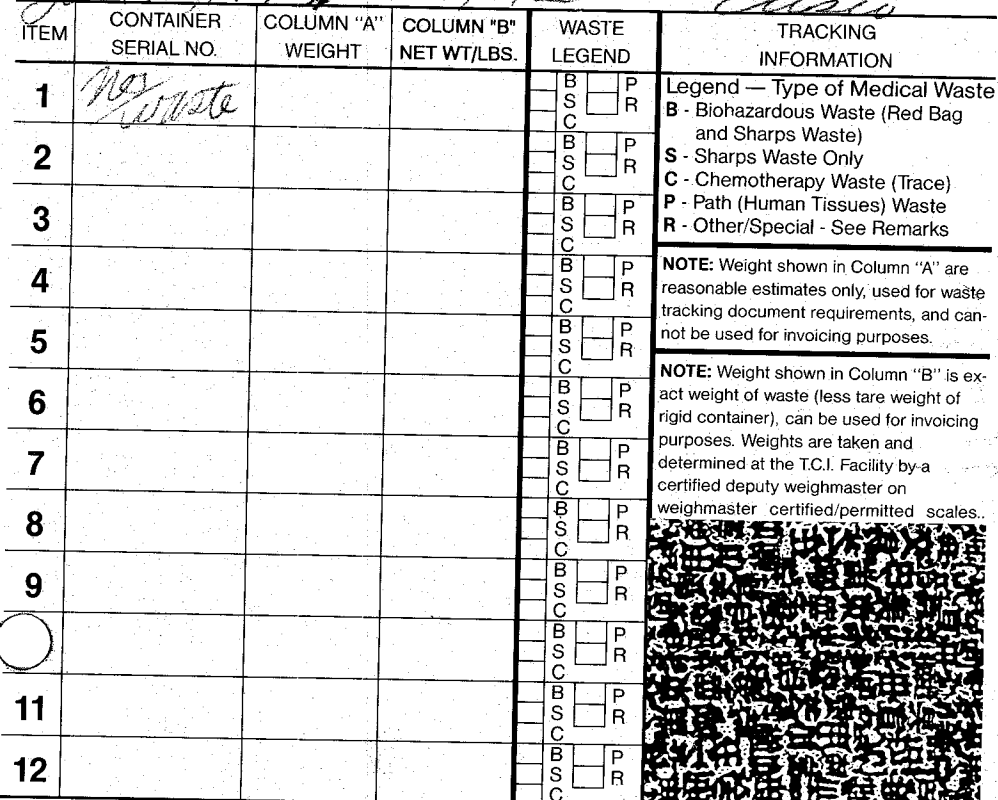 ITEM CONTAINER SERIAL NO. COLUMN "A" WEIGHT COLUMN "B" NET WT/LBS. WASTE LEGEND TRACKING INFORMATION
1 waste B S C P R
2 B S C P R
3 B S C P R
4 B S C P R
5 B S C P R
6 B S C P R
7 B S C P R
8 B S C P R
9 B S C P R
B S C P R
11 B S C P R
12 B S C P R
Legend — Type of Medical Waste
B - Biohazardous Waste (Red Bag
and Sharps Waste)
S - Sharps Waste Only
C - Chemotherapy Waste (Trace)
P - Path (Human Tissues) Waste
R - Other/Special - See Remarks
NOTE: Weight shown in Column "A" are
reasonable estimates only, used for waste
tracking document requirements, and can-
not be used for invoicing purposes.
NOTE: Weight shown in Column "B" is ex-
act weight of waste (less tare weight of
rigid container), can be used for invoicing
purposes. Weights are taken and
determined at the T.C.I. Facility by a
certified deputy weighmaster on
weighmaster certified/permitted scales..